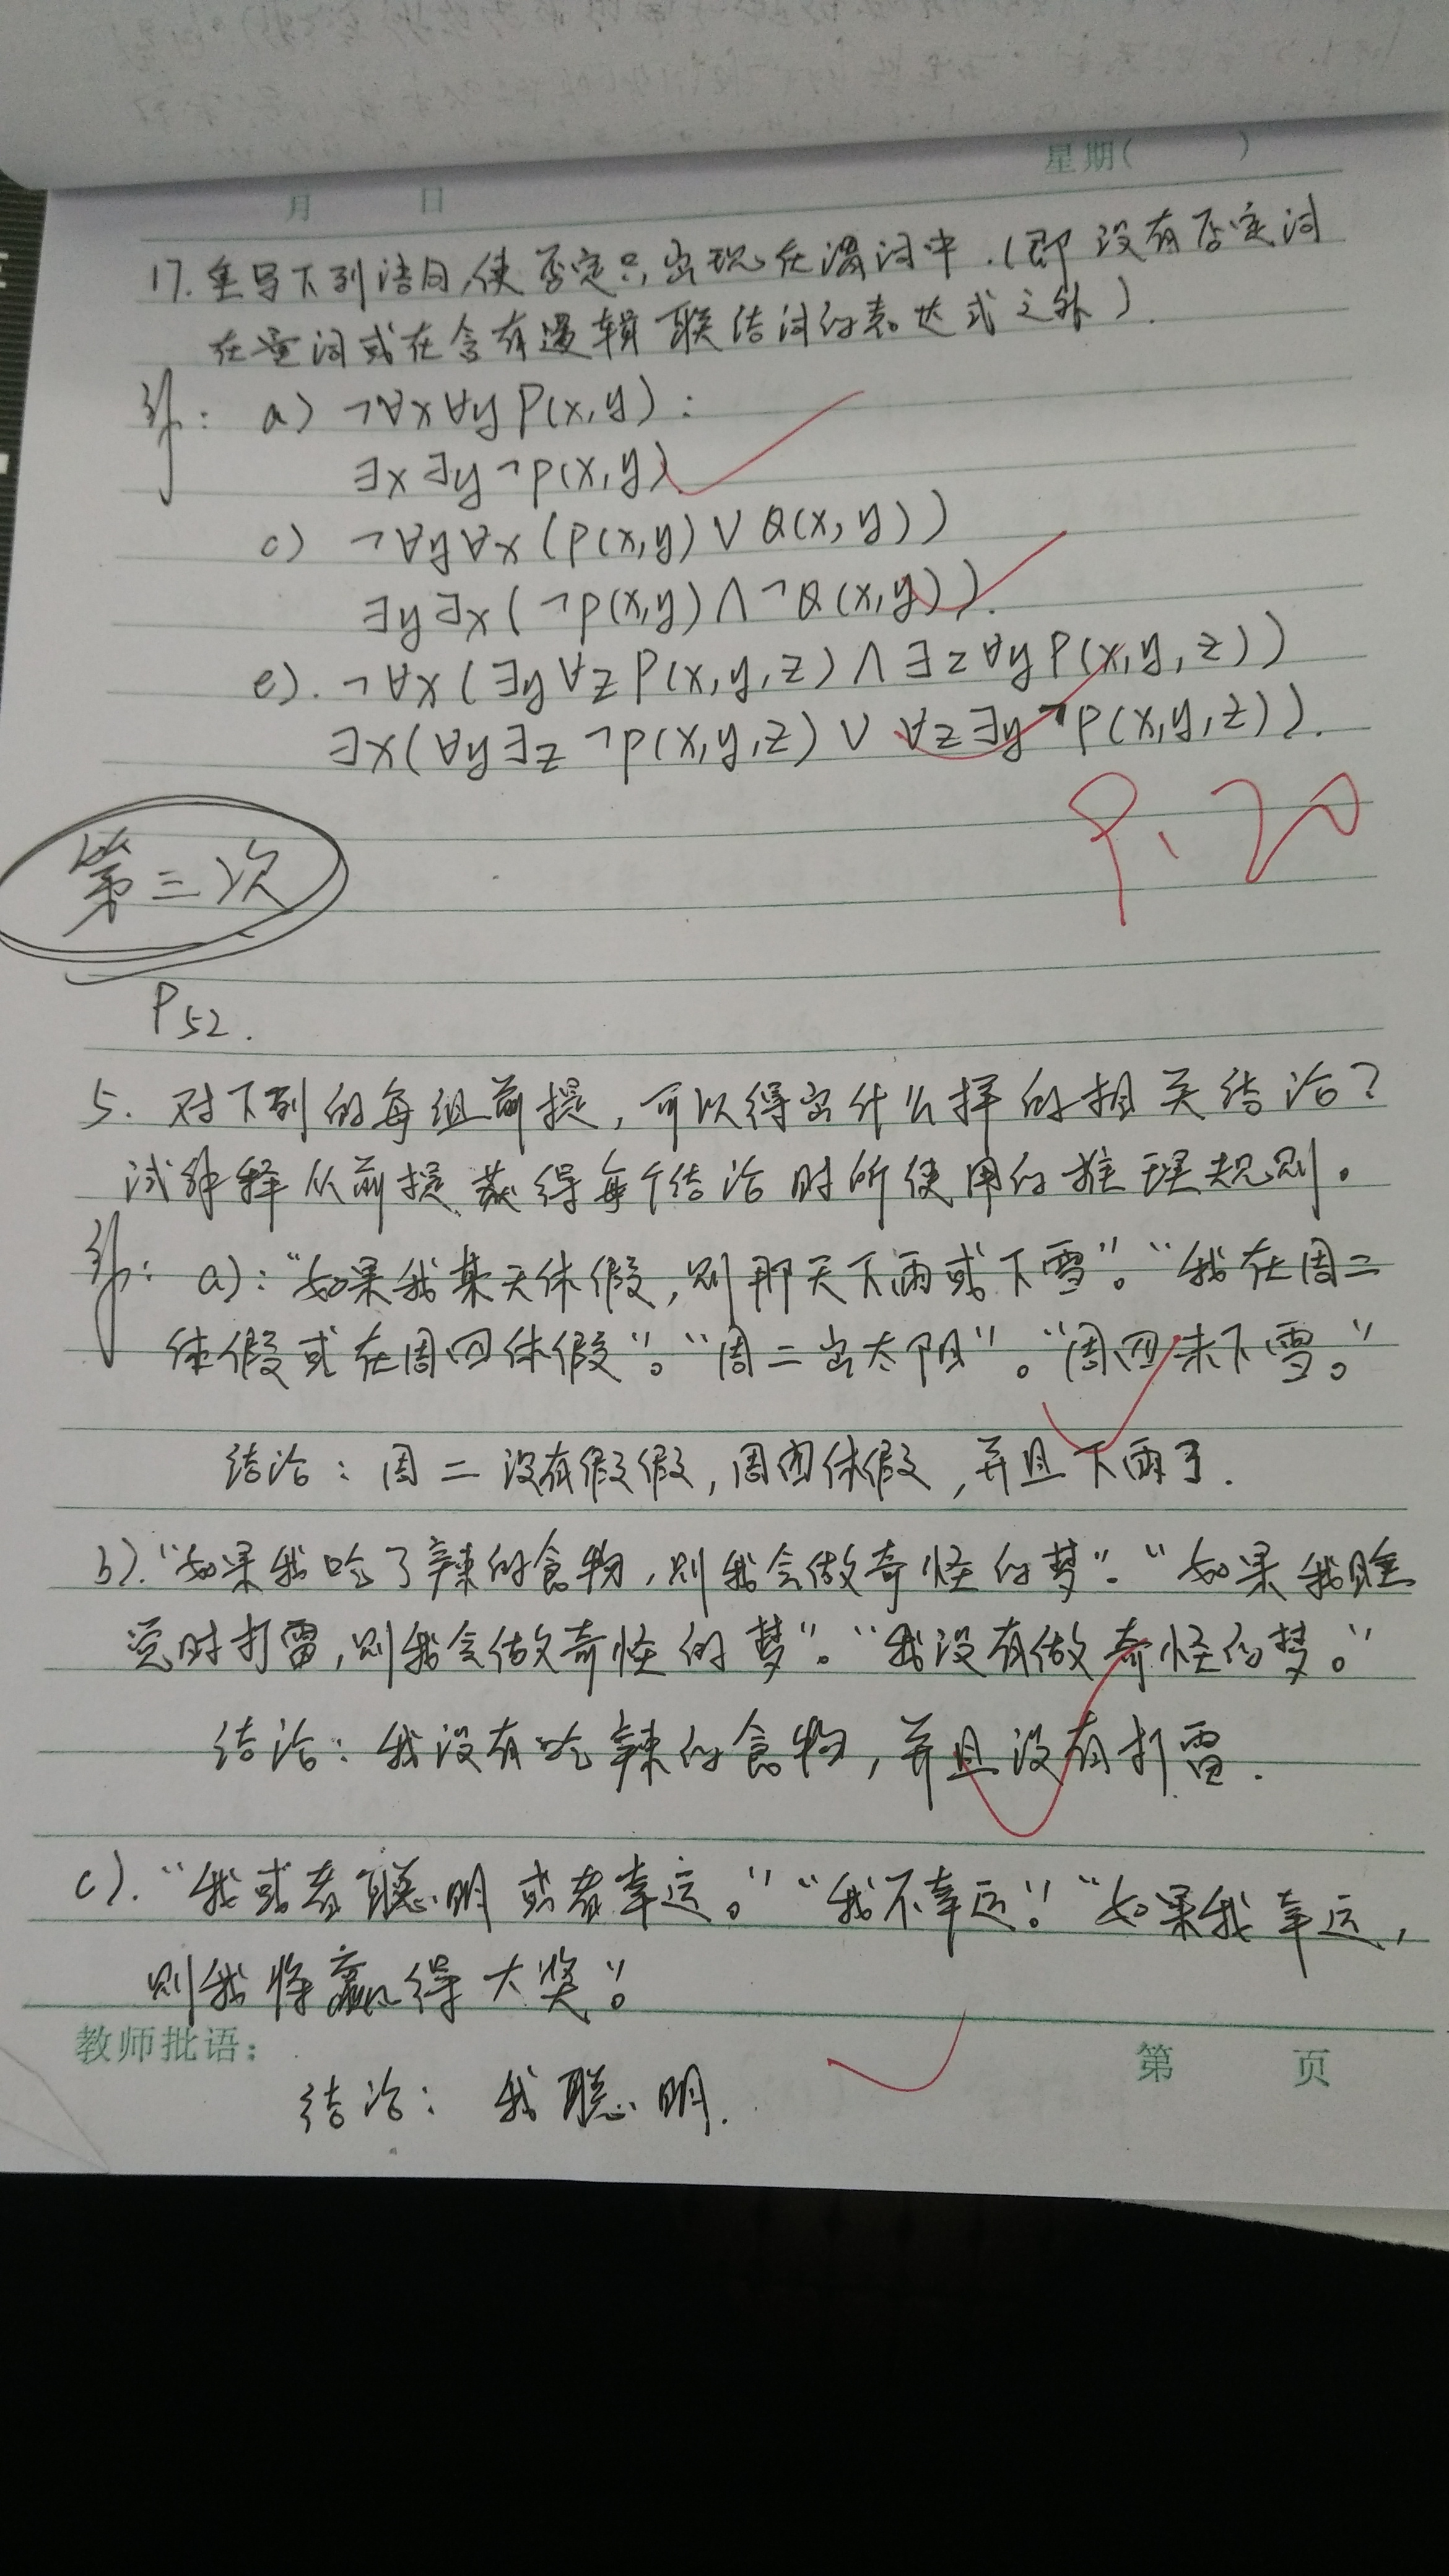 月 日 星期( )
17. 重写下列语句,使否定只出现在谓词中.(即没有否定词
在量词或在含有逻辑联结词的表达式之外).
解: a) ¬∀x∀y P(x,y):
∃x∃y¬P(x,y)
c) ¬∀y∀x(P(x,y)∨Q(x,y))
∃y∃x(¬P(x,y)∧¬Q(x,y)).
e). ¬∀x(∃y∀z P(x,y,z)∧∃z∀y P(x,y,z))
∃x(∀y∃z ¬P(x,y,z)∨ ∀z∃y¬P(x,y,z)).
第三次
P52.
5. 对下列的每组前提,可以得出什么样的相关结论?
试解释从前提获得每个结论时所使用的推理规则。
解: a):“如果我某天休假,则那天下雨或下雪”。“我在周二
休假或在周四休假”。“周二出太阳”。“周四未下雪。”
结论:周二没有假假,周四休假,并且下雨了.
b).“如果我吃了辣的食物,则我会做奇怪的梦”.“如果我睡
觉时打雷,则我会做奇怪的梦”。“我没有做奇怪的梦。”
结论:我没有吃辣的食物,并且没有打雷.
c).“我或者聪明或者幸运。”“我不幸运”.“如果我幸运,
则我将赢得大奖”。
教师批语: 第 页
结论: 我聪明.